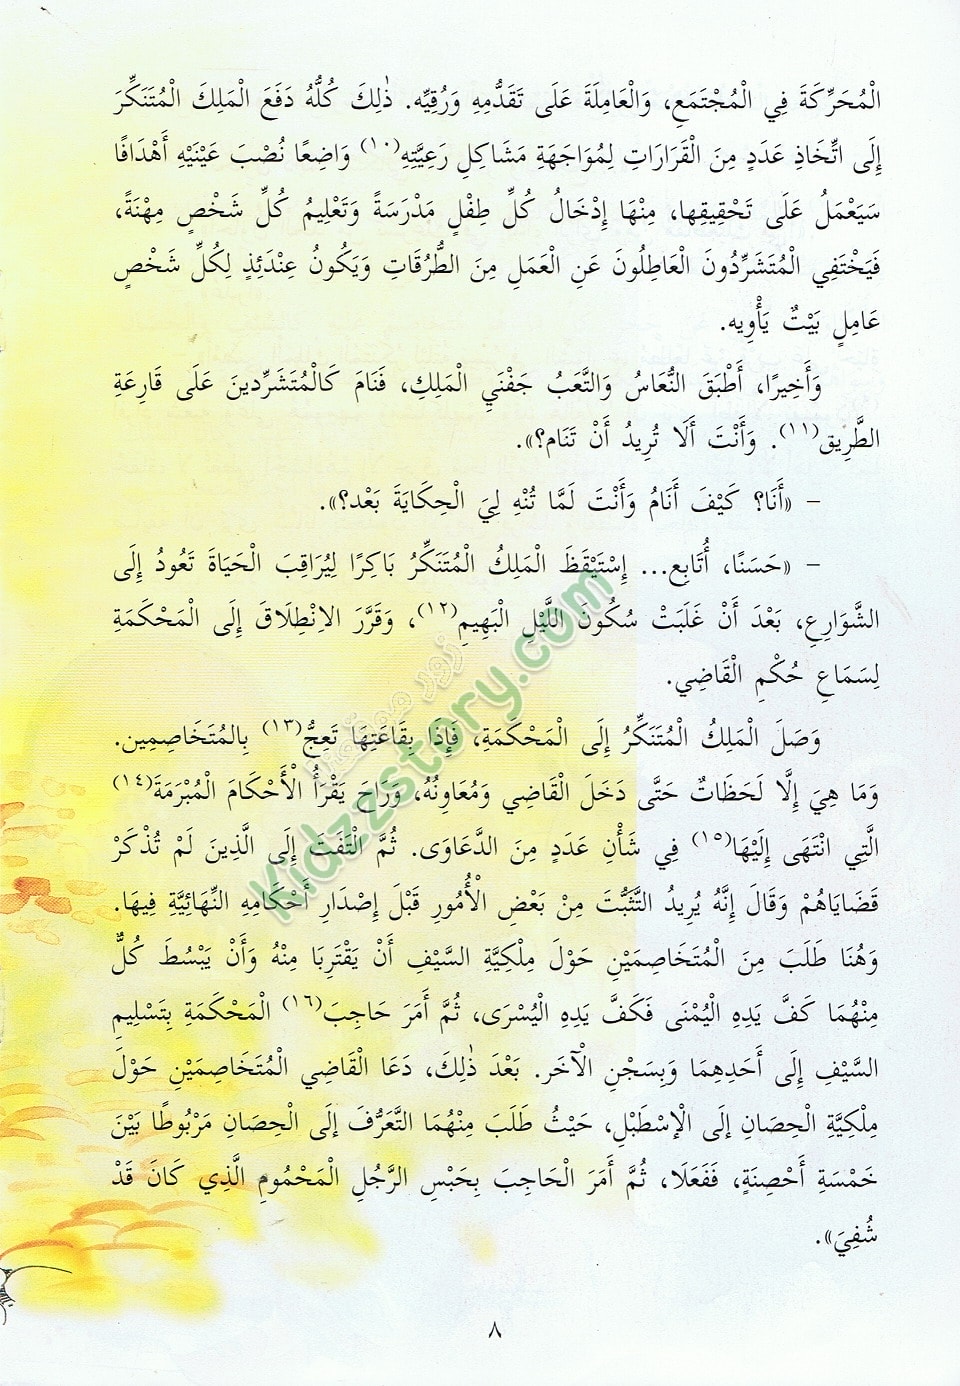 الْمُحَرِّكَةَ فِي الْمُجْتَمَعِ، وَالْعَامِلَةَ عَلَى تَقَدُّمِهِ وَرُقِيِّه. ذٰلِكَ كُلُّهُ دَفَعَ الْمَلِكَ الْمُتَنَكِّرَ
إِلَى اتِّخَاذِ عَدَدٍ مِنَ الْقَرَارَاتِ لِمُوَاجَهَةِ مَشَاكِلِ رَعِيَّتِهِ(١٠) وَاضِعًا نُصْبَ عَيْنَيْهِ أَهْدَافًا
سَيَعْمَلُ عَلَى تَحْقِيقِها، مِنْهَا إِدْخَالُ كُلِّ طِفْلٍ مَدْرَسَةً وَتَعْلِيمُ كُلِّ شَخْصٍ مِهْنَةً،
فَيَخْتَفِي الْمُتَشَرِّدُونَ الْعَاطِلُونَ عَنِ الْعَمَلِ مِنَ الطُّرُقَاتِ وَيَكُونُ عِنْدَئِذٍ لِكُلِّ شَخْصٍ
عَامِلٍ بَيْتٌ يَأْوِيه.
وَأَخِيرًا، أَطْبَقَ النُّعَاسُ وَالتَّعَبُ جَفْنَيِ الْمَلِكِ، فَنَامَ كَالْمُتَشَرِّدينَ عَلَى قَارِعَةِ
الطَّرِيق(١١). وَأَنْتَ أَلَا تُرِيدُ أَنْ تَنَام؟».
– «أَنَا؟ كَيْفَ أَنَامُ وَأَنْتَ لَمَّا تُنْهِ لِيَ الْحِكَايَةَ بَعْد؟».
– «حَسَنًا، أُتَابِع... إِسْتَيْقَظَ الْمَلِكُ الْمُتَنَكِّرُ بَاكِرًا لِيُرَاقِبَ الْحَيَاةَ تَعُودُ إِلَى
الشَّوَارِعِ، بَعْدَ أَنْ غَلَبَتْ سُكُونَ اللَّيْلِ الْبَهِيمِ(١٢)، وَقَرَّرَ الاِنْطِلَاقَ إِلَى الْمَحْكَمَةِ
لِسَمَاعِ حُكْمِ الْقَاضِي.
وَصَلَ الْمَلِكُ الْمُتَنَكِّرُ إِلَى الْمَحْكَمَةِ، فَإِذَا بِقَاعَتِهَا تَعِجُّ(١٣) بِالمُتَخَاصِمِين.
وَمَا هِيَ إِلَّا لَحَظَاتٌ حَتَّى دَخَلَ الْقَاضِي وَمُعَاوِنُهُ، وَرَاحَ يَقْرَأُ الْأَحْكَامَ الْمُبْرَمَةَ(١٤)
الَّتِي انْتَهَى إِلَيْهَا(١٥) فِي شَأْنِ عَدَدٍ مِنَ الدَّعَاوَى. ثُمَّ الْتَفَتَ إِلَى الَّذِينَ لَمْ تُذْكَرْ
قَضَايَاهُمْ وَقَالَ إِنَّهُ يُرِيدُ التَّثَبُّتَ مِنْ بَعْضِ الْأُمُورِ قَبْلَ إِصْدَارِ أَحْكَامِهِ النِّهَائِيَّةِ فِيهَا.
وَهُنَا طَلَبَ مِنَ الْمُتَخَاصِمَيْنِ حَوْلَ مِلْكِيَّةِ السَّيْفِ أَنْ يَقْتَرِبَا مِنْهُ وَأَنْ يَبْسُطَ كُلٌّ
مِنْهُمَا كَفَّ يَدِهِ الْيُمْنَى فَكَفَّ يَدِهِ الْيُسْرَى، ثُمَّ أَمَرَ حَاجِبَ(١٦) الْمَحْكَمَةِ بِتَسْلِيمِ
السَّيْفِ إِلَى أَحَدِهِمَا وَبِسَجْنِ الْآخَر. بَعْدَ ذٰلِكَ، دَعَا الْقَاضِي الْمُتَخَاصِمَيْنِ حَوْلَ
مِلْكِيَّةِ الْحِصَانِ إِلَى الْإِسْطَبْلِ، حَيْثُ طَلَبَ مِنْهُمَا التَّعَرُّفَ إِلَى الْحِصَانِ مَرْبُوطًا بَيْنَ
خَمْسَةِ أَحْصِنَةٍ، فَفَعَلَا، ثُمَّ أَمَرَ الْحَاجِبَ بِحَبْسِ الرَّجُلِ الْمَحْمُومِ الَّذِي كَانَ قَدْ
شُفِيَ».
٨
kidzzstory.com